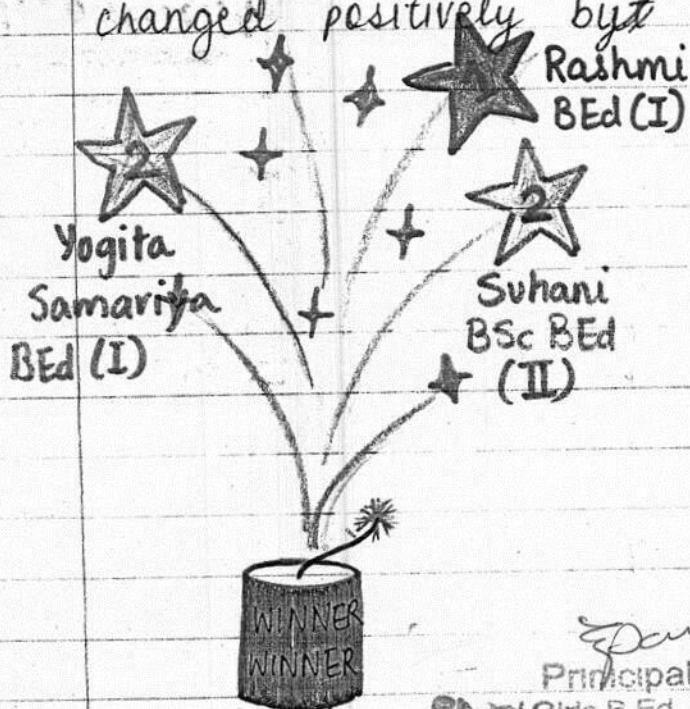 changed positively by
Rashmi
BEd (I)
2
2
Yogita
Samariya
BEd (I)
Suhani
BSc BEd
(II)
WINNER
WINNER
Principal
Girls B.Ed.